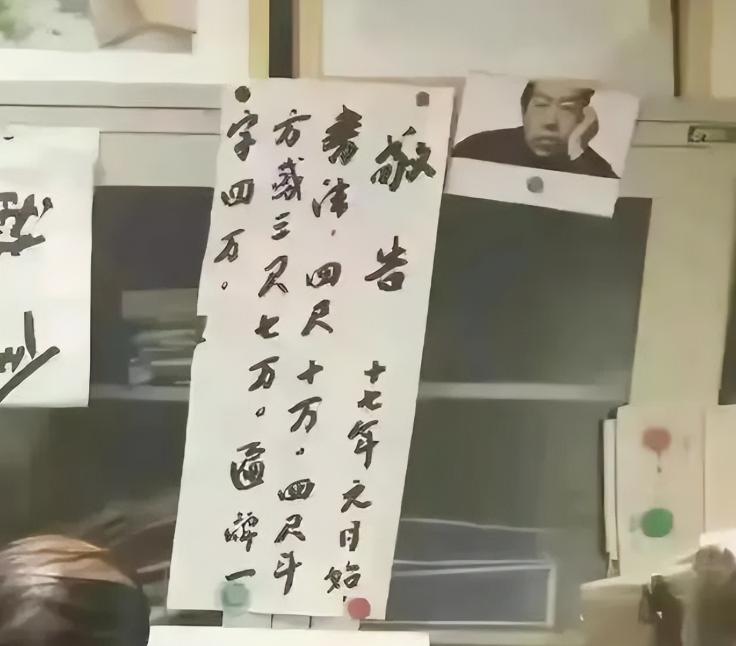 敬告 十七年元月始
书法，四尺十万。四尺斗
方或三尺七万。匾碑一
字四万。